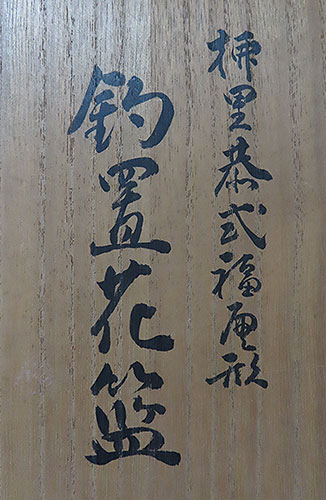 柳里恭式福形
釣置花籃